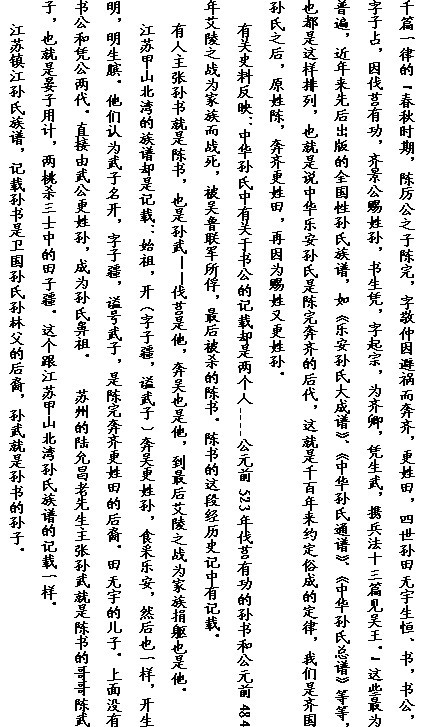 千篇一律的“春秋时期，陈厉公之子陈完，字敬仲因避祸而奔齐，更姓田，四世孙田无宇生恒、书，书公，
字子占，因伐莒有功，齐景公赐姓孙，书生凭，字起宗，为齐卿，凭生武，携兵法十三篇见吴王。”这些最为
普遍，近年来先后出版的全国性孙氏族谱，如《乐安孙氏大成谱》、《中华孙氏通谱》、《中华孙氏总谱》等等，
也都是这样排列，也就是说中华乐安孙氏是陈完奔齐的后代，这就是千百年来约定俗成的定律，我们是齐国
孙氏之后，原姓陈，奔齐更姓田，再因为赐姓又更姓孙。
有关史料反映：中华孙氏中有关于书公的记载却是两个人----公元前523年伐莒有功的孙书和公元前484
年艾陵之战为家族而战死，被吴鲁联军所俘，最后被杀的陈书。陈书的这段经历史记中有记载。
有人主张孙书就是陈书，也是孙武——伐莒是他，奔吴也是他，到最后艾陵之战为家族捐躯也是他。
江苏甲山北湾的族谱却是记载：始祖，开（字子疆，谥武子）奔吴更姓孙，食采乐安，然后也一样，开生
明，明生膑。他们认为武子名开，字子疆，谥号武子，是陈完奔齐更姓田的后裔。田无宇的儿子。上面没有
书公和凭公两代。直接由武公更姓孙，成为孙氏鼻祖。 苏州的陆允昌老先生主张孙武就是陈书的哥哥陈武
子，也就是晏子用计，两桃杀三士中的田子疆。这个跟江苏甲山北湾孙氏族谱的记载一样。
江苏镇江孙氏族谱，记载孙书是卫国孙氏孙林父的后裔，孙武就是孙书的孙子。